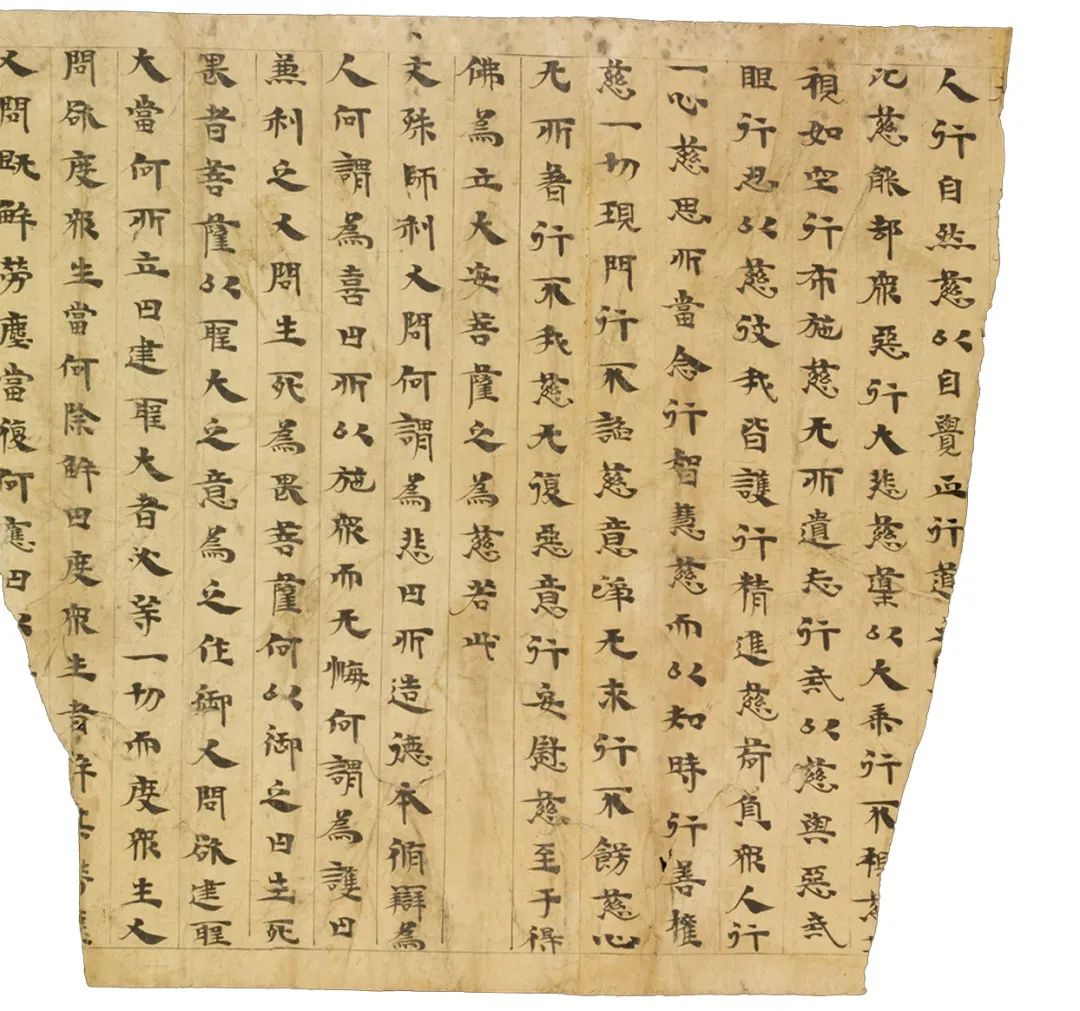 人行自然慈以自覺正行道
慈能部眾惡行大悲慈導以大乘行不視慈
視如空行布施慈无所遺忘行戒以慈與惡戒
眼行忍以慈彼我皆護行精進慈荷負眾人行
一心慈思所當念行智慧慈而以知時行善權
慈一切現門行不諂慈意淨无求行不餝慈心
无所著行不我慈无復惡意行安慰慈至于得
佛為立大安菩薩之為慈若此
文殊師利又問何謂為悲曰所造德本脩辯為
人何謂為喜曰所以施眾而无悔何謂為護曰
兼利之又問生死為畏菩薩何以御之曰生死
畏者菩薩以聖大之意為之住御又問欲建聖
大當何所立曰建聖大者必等一切而度眾生又
問欲度眾生當何除解曰度眾生者解其勞塵
又問既解勞塵當復何應曰以